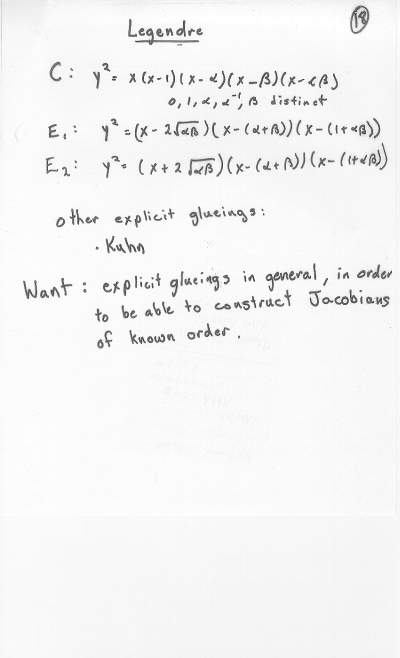 Legendre
18
C: y² = x(x-1)(x-α)(x-β)(x-αβ)
0, 1, α, α⁻¹, β distinct
E₁: y² = (x-2√αβ)(x-(α+β))(x-(1+αβ))
E₂: y² = (x+2√αβ)(x-(α+β))(x-(1+αβ))
other explicit glueings:
· Kuhn
Want: explicit glueings in general, in order
to be able to construct Jacobians
of known order.